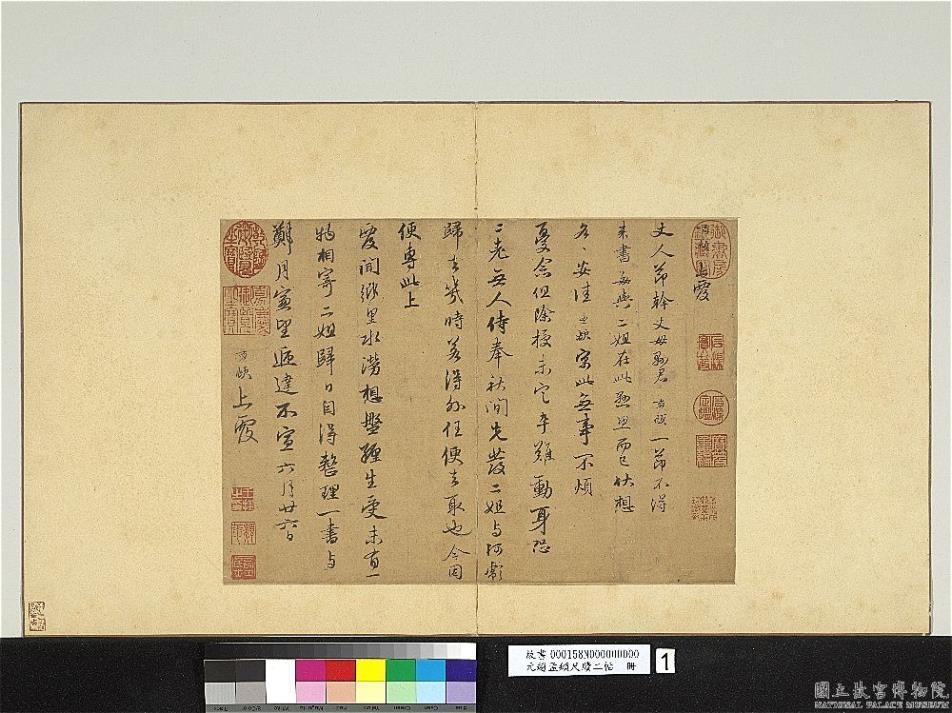 上覆
丈人節幹丈母縣君 孟頫一節不得
来書每與二姐在此懸思而已伏想
各各安佳孟頫寓此無事不煩
憂念但除授未定卒難動身恐
二老無人侍奉秋間先發二姐与阿彪
歸去幾時若得外任便去取也今因
便專此上
覆聞鄉里水澇想盤纏生受未有一
物相寄二姐歸日自得整理一書与
鄭月窗望遞達不宣六月廿六日
孟頫上覆
故書 000158N000000000
元趙孟頫尺牘二帖 冊
1
國立故宮博物院
NATIONAL PALACE MUSEUM